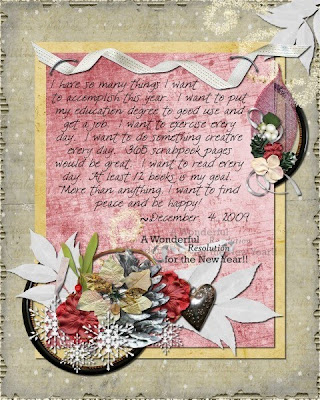 I have so many things I want
to accomplish this year. I want to put
my education degree to good use and
get a job. I want to exercise every
day. I want to do something creative
every day. 365 scrapbook pages
would be great. I want to read every
day. At least 12 books is my goal.
More than anything, I want to find
peace and be happy!
~December 4, 2009
A Wonderful
Resolution
for the New Year!!